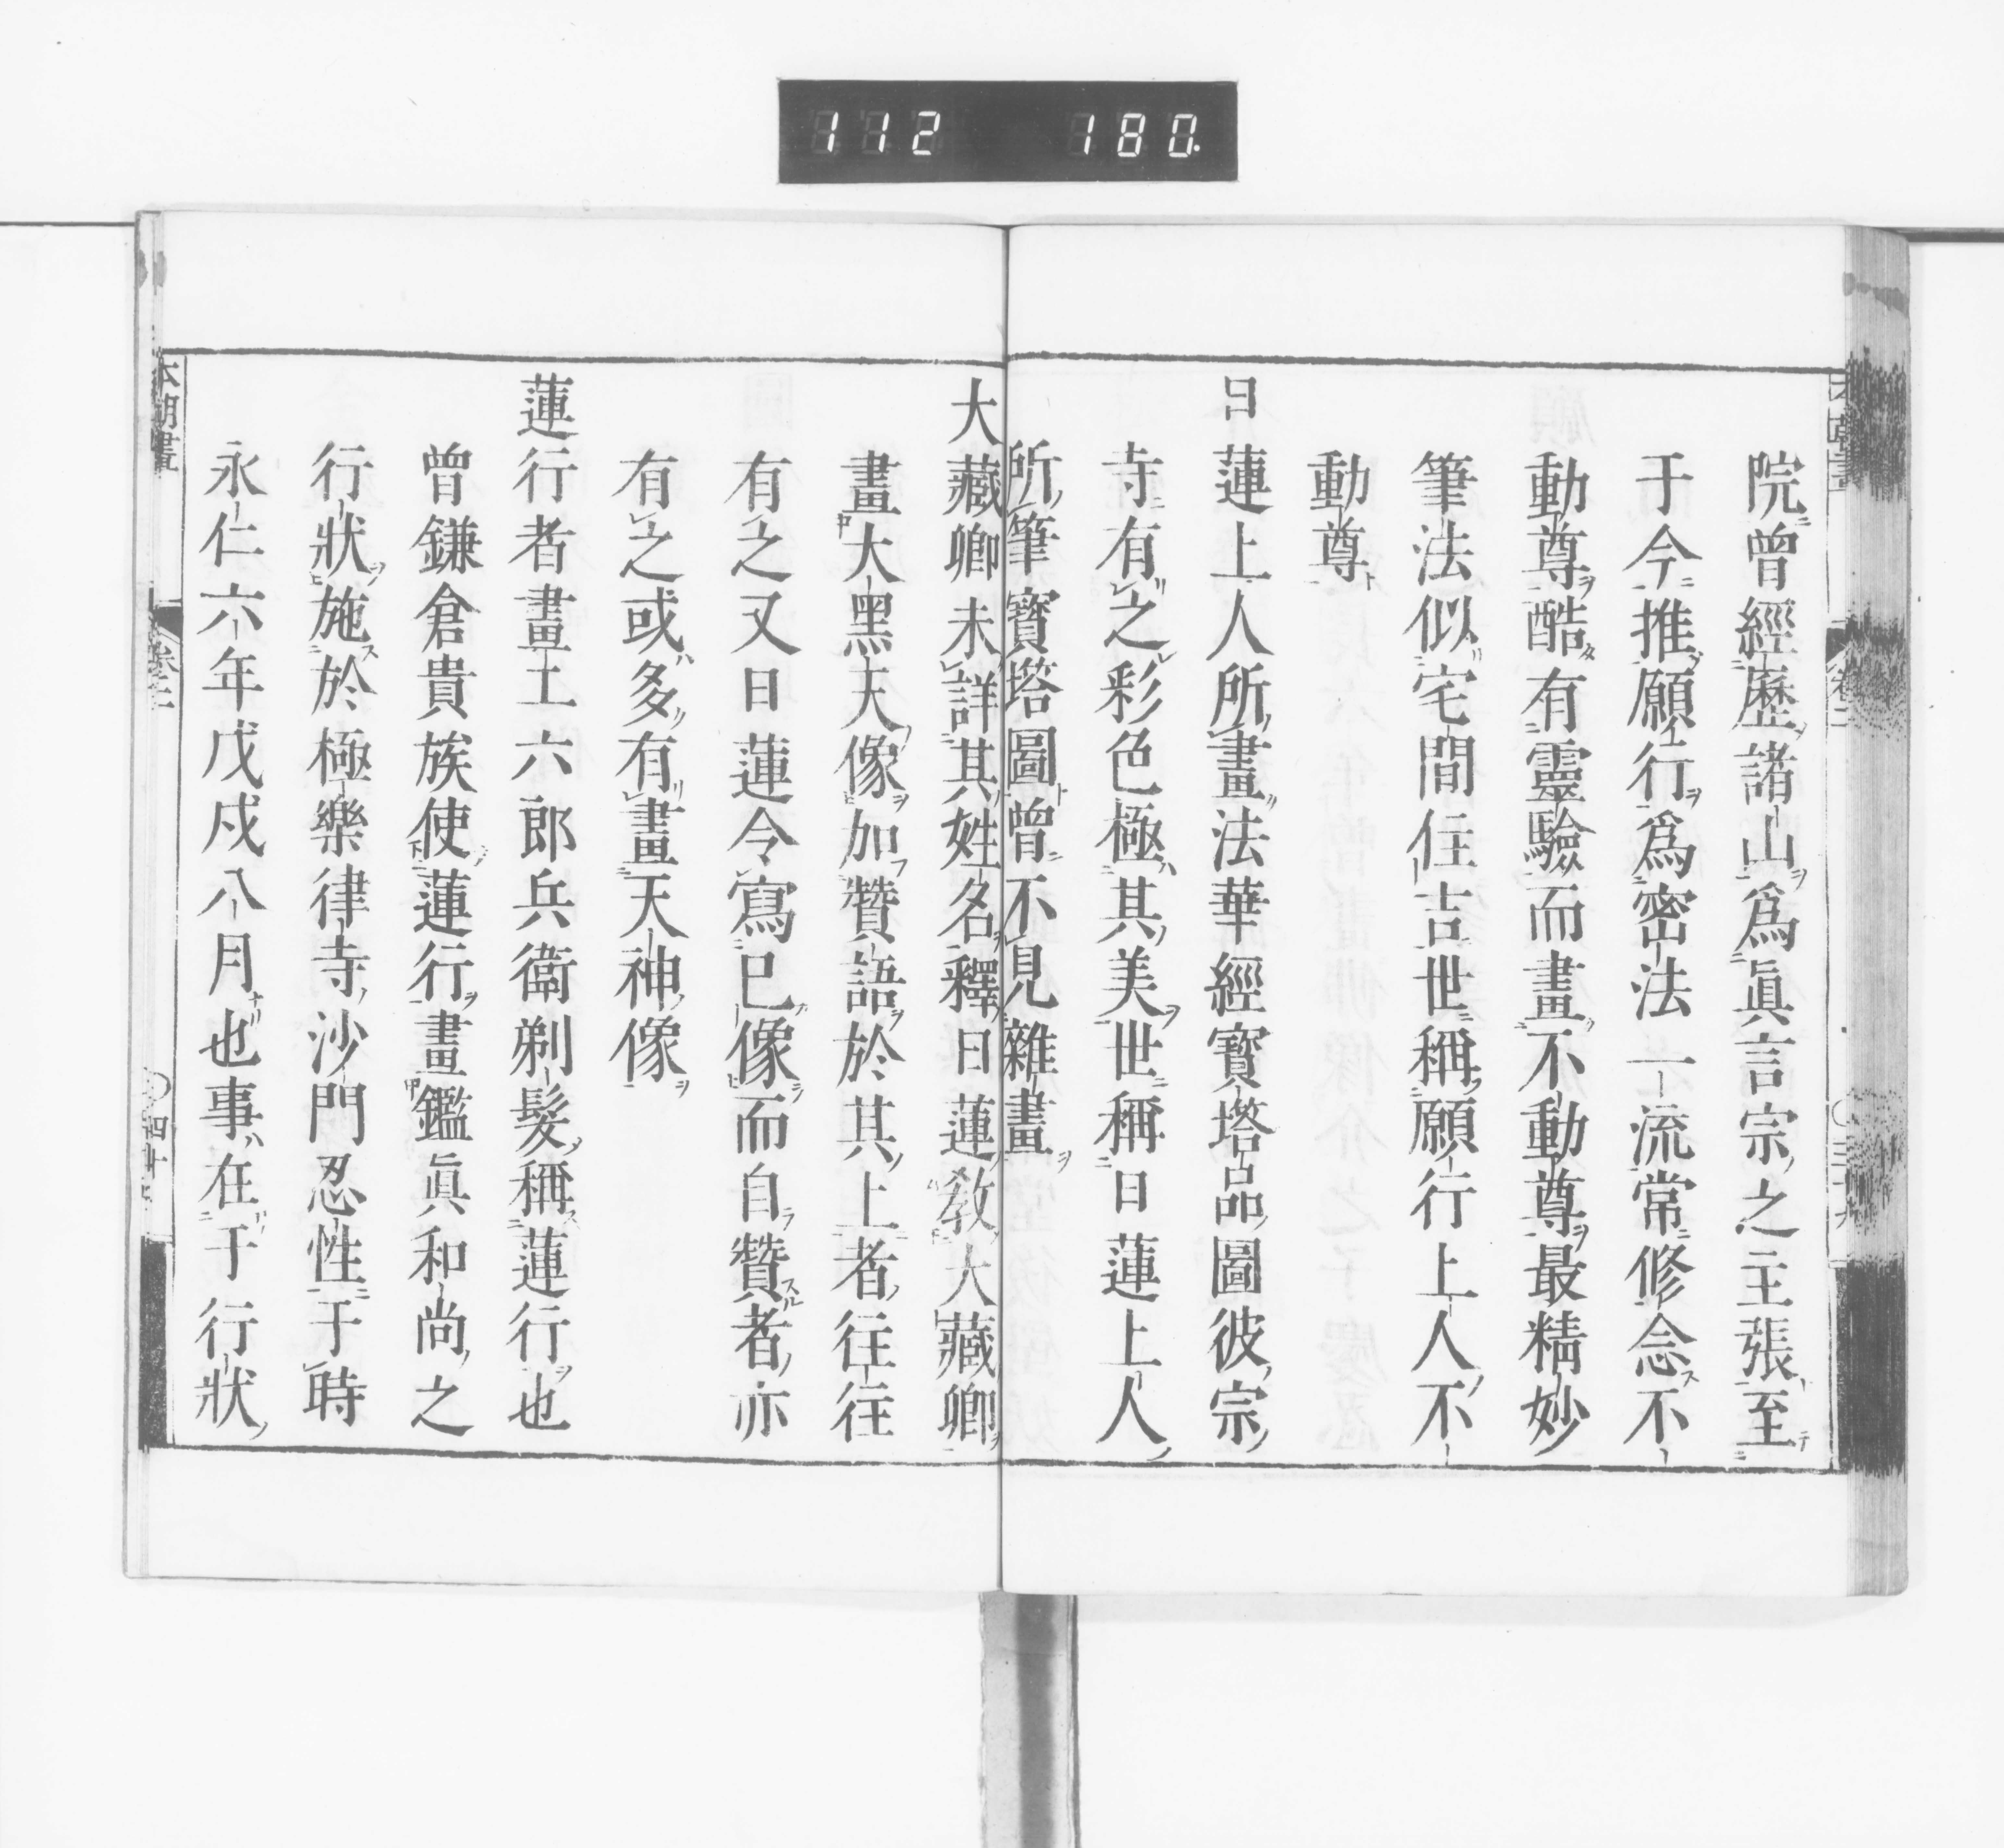 112 180.
院曾經歷諸山爲眞言宗之主張至
于今推願行爲密法一流常修念不
動尊酷有靈驗而畫不動尊最精妙
筆法似宅間住吉世稱願行上人不
動尊
日蓮上人所畫法華經寶塔品圖彼宗
寺有之彩色極其美世稱日蓮上人
所筆寶塔圖曾不見雜畫
大藏卿未詳其姓名釋日蓮教大藏卿
畫大黑天像加贊語於其上者往往
有之又日蓮令寫已像而自贊者亦
有之或多有畫天神像
蓮行者畫工六郎兵衛剃髮稱蓮行也
曾鎌倉貴族使蓮行畫鑑眞和尚之
行狀施於極樂律寺沙門忍性于時
永仁六年戊戍八月也事在于行狀
本朝畫 卷二 四十